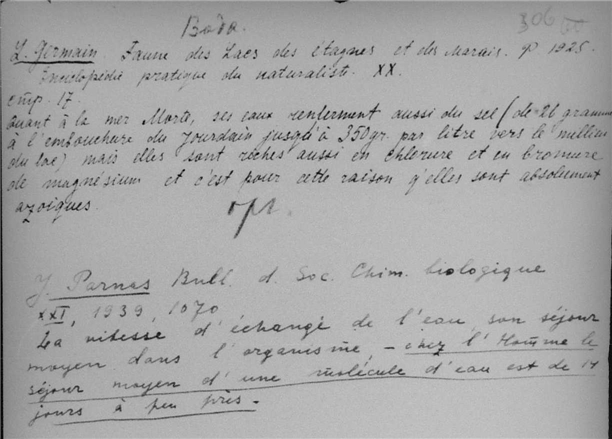 Вода.
306
L. Germain Faune des Lacs des étagnes et des Marais. P 1925.
Enciclopédie pratique du naturaliste. XX.
стр. 17.
Quant à la mer Morte, ses eaux renferment aussi du sel (de 26 gramme
à l'embouchure du Jourdain jusqu'à 350gr. par litre vers le milieu
du lac) mais elles sont riches aussi en chlorure et en bromure
de magnésium et c'est pour cette raison q'elles sont absolument
azoïques.
J. Parnas Bull. d. Soc. Chim. biologique
XXI, 1939, 1070
La vitesse d'échange de l'eau, son séjour
moyen dans l'organisme – chez l'Homme le
séjour moyen d'une molécule d'eau est de 14
jours à peu près.–